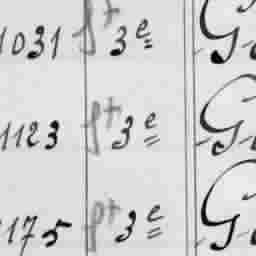 1031 pt 3e G
1123 pt 3e G
1175 pt 3e G